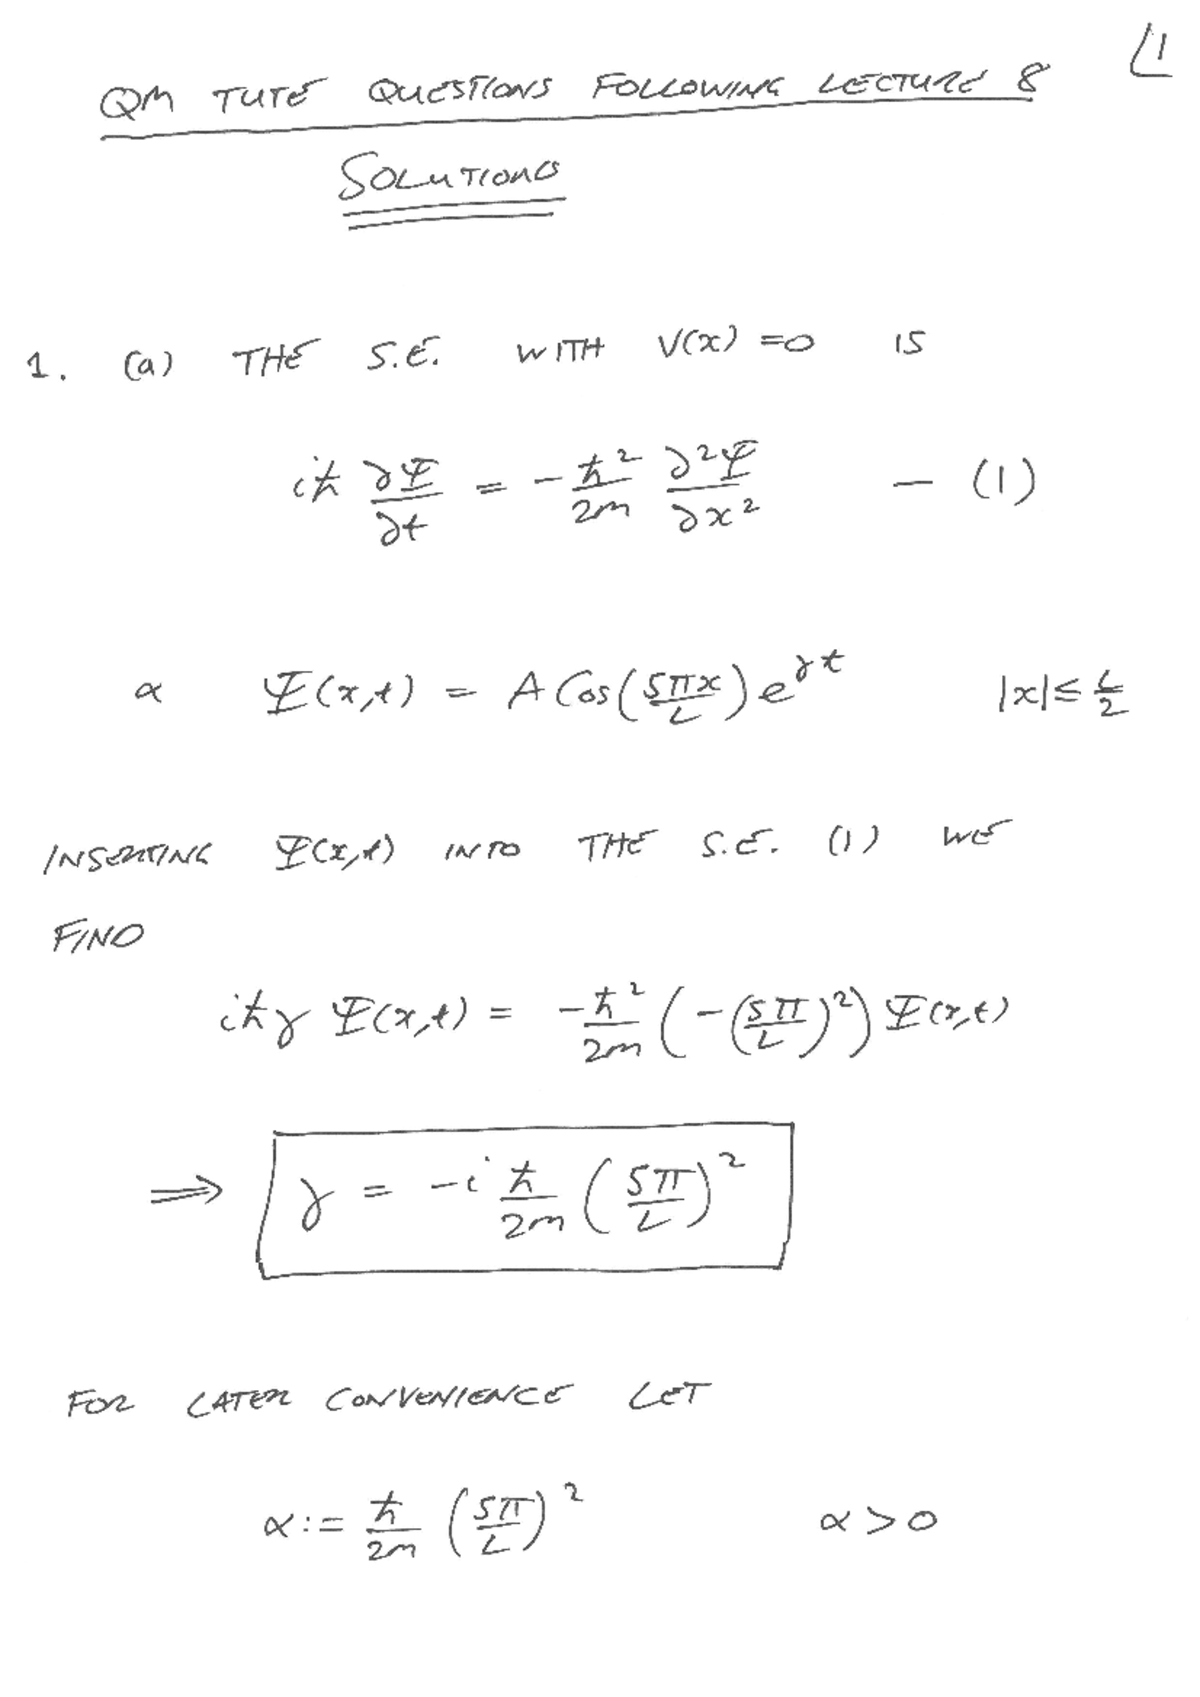 1
QM TUTE QUESTIONS FOLLOWING LECTURE 8
SOLUTIONS
1. (a) THE S.E. WITH V(x) =0 IS
iħ ∂Ψ/∂t = -ħ²/2m ∂²Ψ/∂x² — (1)
α Ψ(x,t) = A Cos(5πx/L) e^γt |x| ≤ L/2
INSERTING Ψ(x,t) INTO THE S.E. (1) WE
FIND
iħγ Ψ(x,t) = -ħ²/2m (-(5π/L)²) Ψ(x,t)
⟹ γ = -i ħ/2m (5π/L)²
FOR LATER CONVENIENCE LET
α := ħ/2m (5π/L)² α > 0